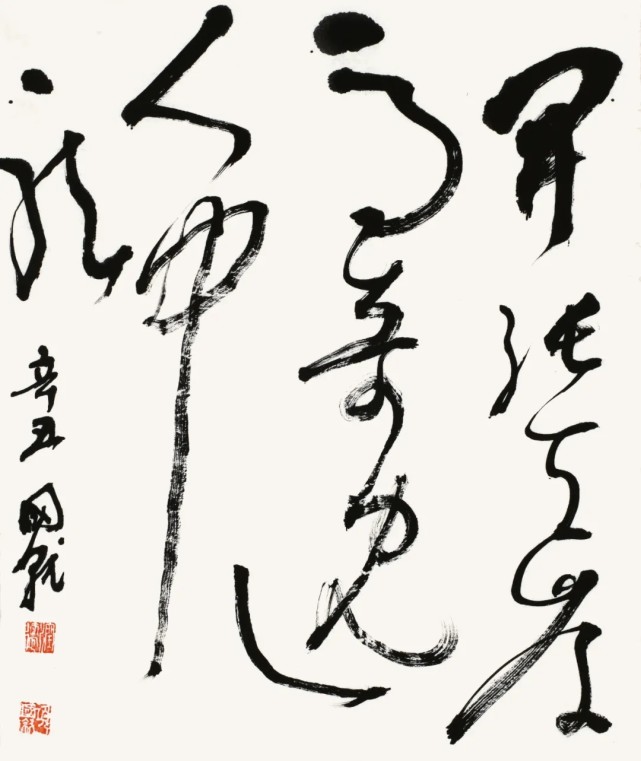 開張天岸
馬奇逸
人中
龍
辛丑 國